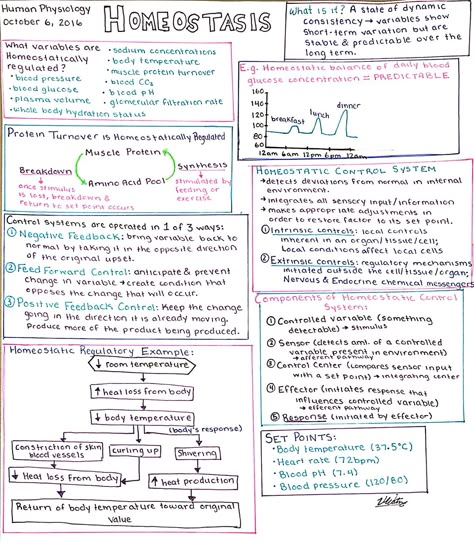 Human Physiology
October 6, 2016
HOMEOSTASIS
What is it? A state of dynamic
consistency → variables show
short-term variation but are
stable & predictable over the
long term.
What variables are
Homeostatically
regulated?
• blood pressure
• blood glucose
• plasma volume
• whole body hydration status
• sodium concentrations
• body temperature
• muscle protein turnover
• blood CO₂
• blood pH
• glomerular filtration rate
E.g. Homeostatic balance of daily blood
glucose concentration = PREDICTABLE
160
140
120
100
80
60
breakfast
lunch
dinner
12am 6am 12pm 6pm 12am
Protein Turnover is Homeostatically Regulated
Muscle Protein
Breakdown
→ once stimulus
is lost, breakdown &
return to set point occurs
Amino Acid Pool
Synthesis
→ stimulated by
feeding or
exercise
HOMEOSTATIC CONTROL SYSTEM
→ detects deviations from normal in internal
environment.
→ integrates all sensory input/information
→ makes appropriate adjustments in
order to restore factor to its set point.
① Intrinsic controls: local controls
inherent in an organ/tissue/cell;
local conditions affect local cells
② Extrinsic controls: regulatory mechanisms
initiated outside the cell/tissue/organ;
Nervous & Endocrine chemical messengers
Control systems are operated in 1 of 3 ways:
① Negative Feedback: bring variable back to
normal by taking it in the opposite direction
of the original upset.
② Feed Forward Control: anticipate & prevent
change in variable → create condition that
opposes the change that will occur.
③ Positive Feedback Control: Keep the change
going in the direction it is already moving.
Produce more of the product being produced.
Components of Homeostatic Control
Systems
① Controlled variable (something
detectable) → stimulus
② Sensor (detects amt. of a controlled
variable present in environment)
→ afferent pathway
③ Control Center (compares sensor input
with a set point) → integrating center
④ Effector (initiates response that
influences controlled variable)
→ efferent pathway
⑤ Response (initiated by effector)
Homeostatic Regulatory Example:
↓ room temperature
↑ heat loss from body
↓ body temperature
(body's response)
constriction of skin
blood vessels
curling up
Shivering
↓ Heat loss from body
↑ heat production
Return of body temperature toward original
value
SET POINTS:
• Body temperature (37.5°C)
• Heart rate (72bpm)
• Blood pH (7.4)
• Blood pressure (120/80)